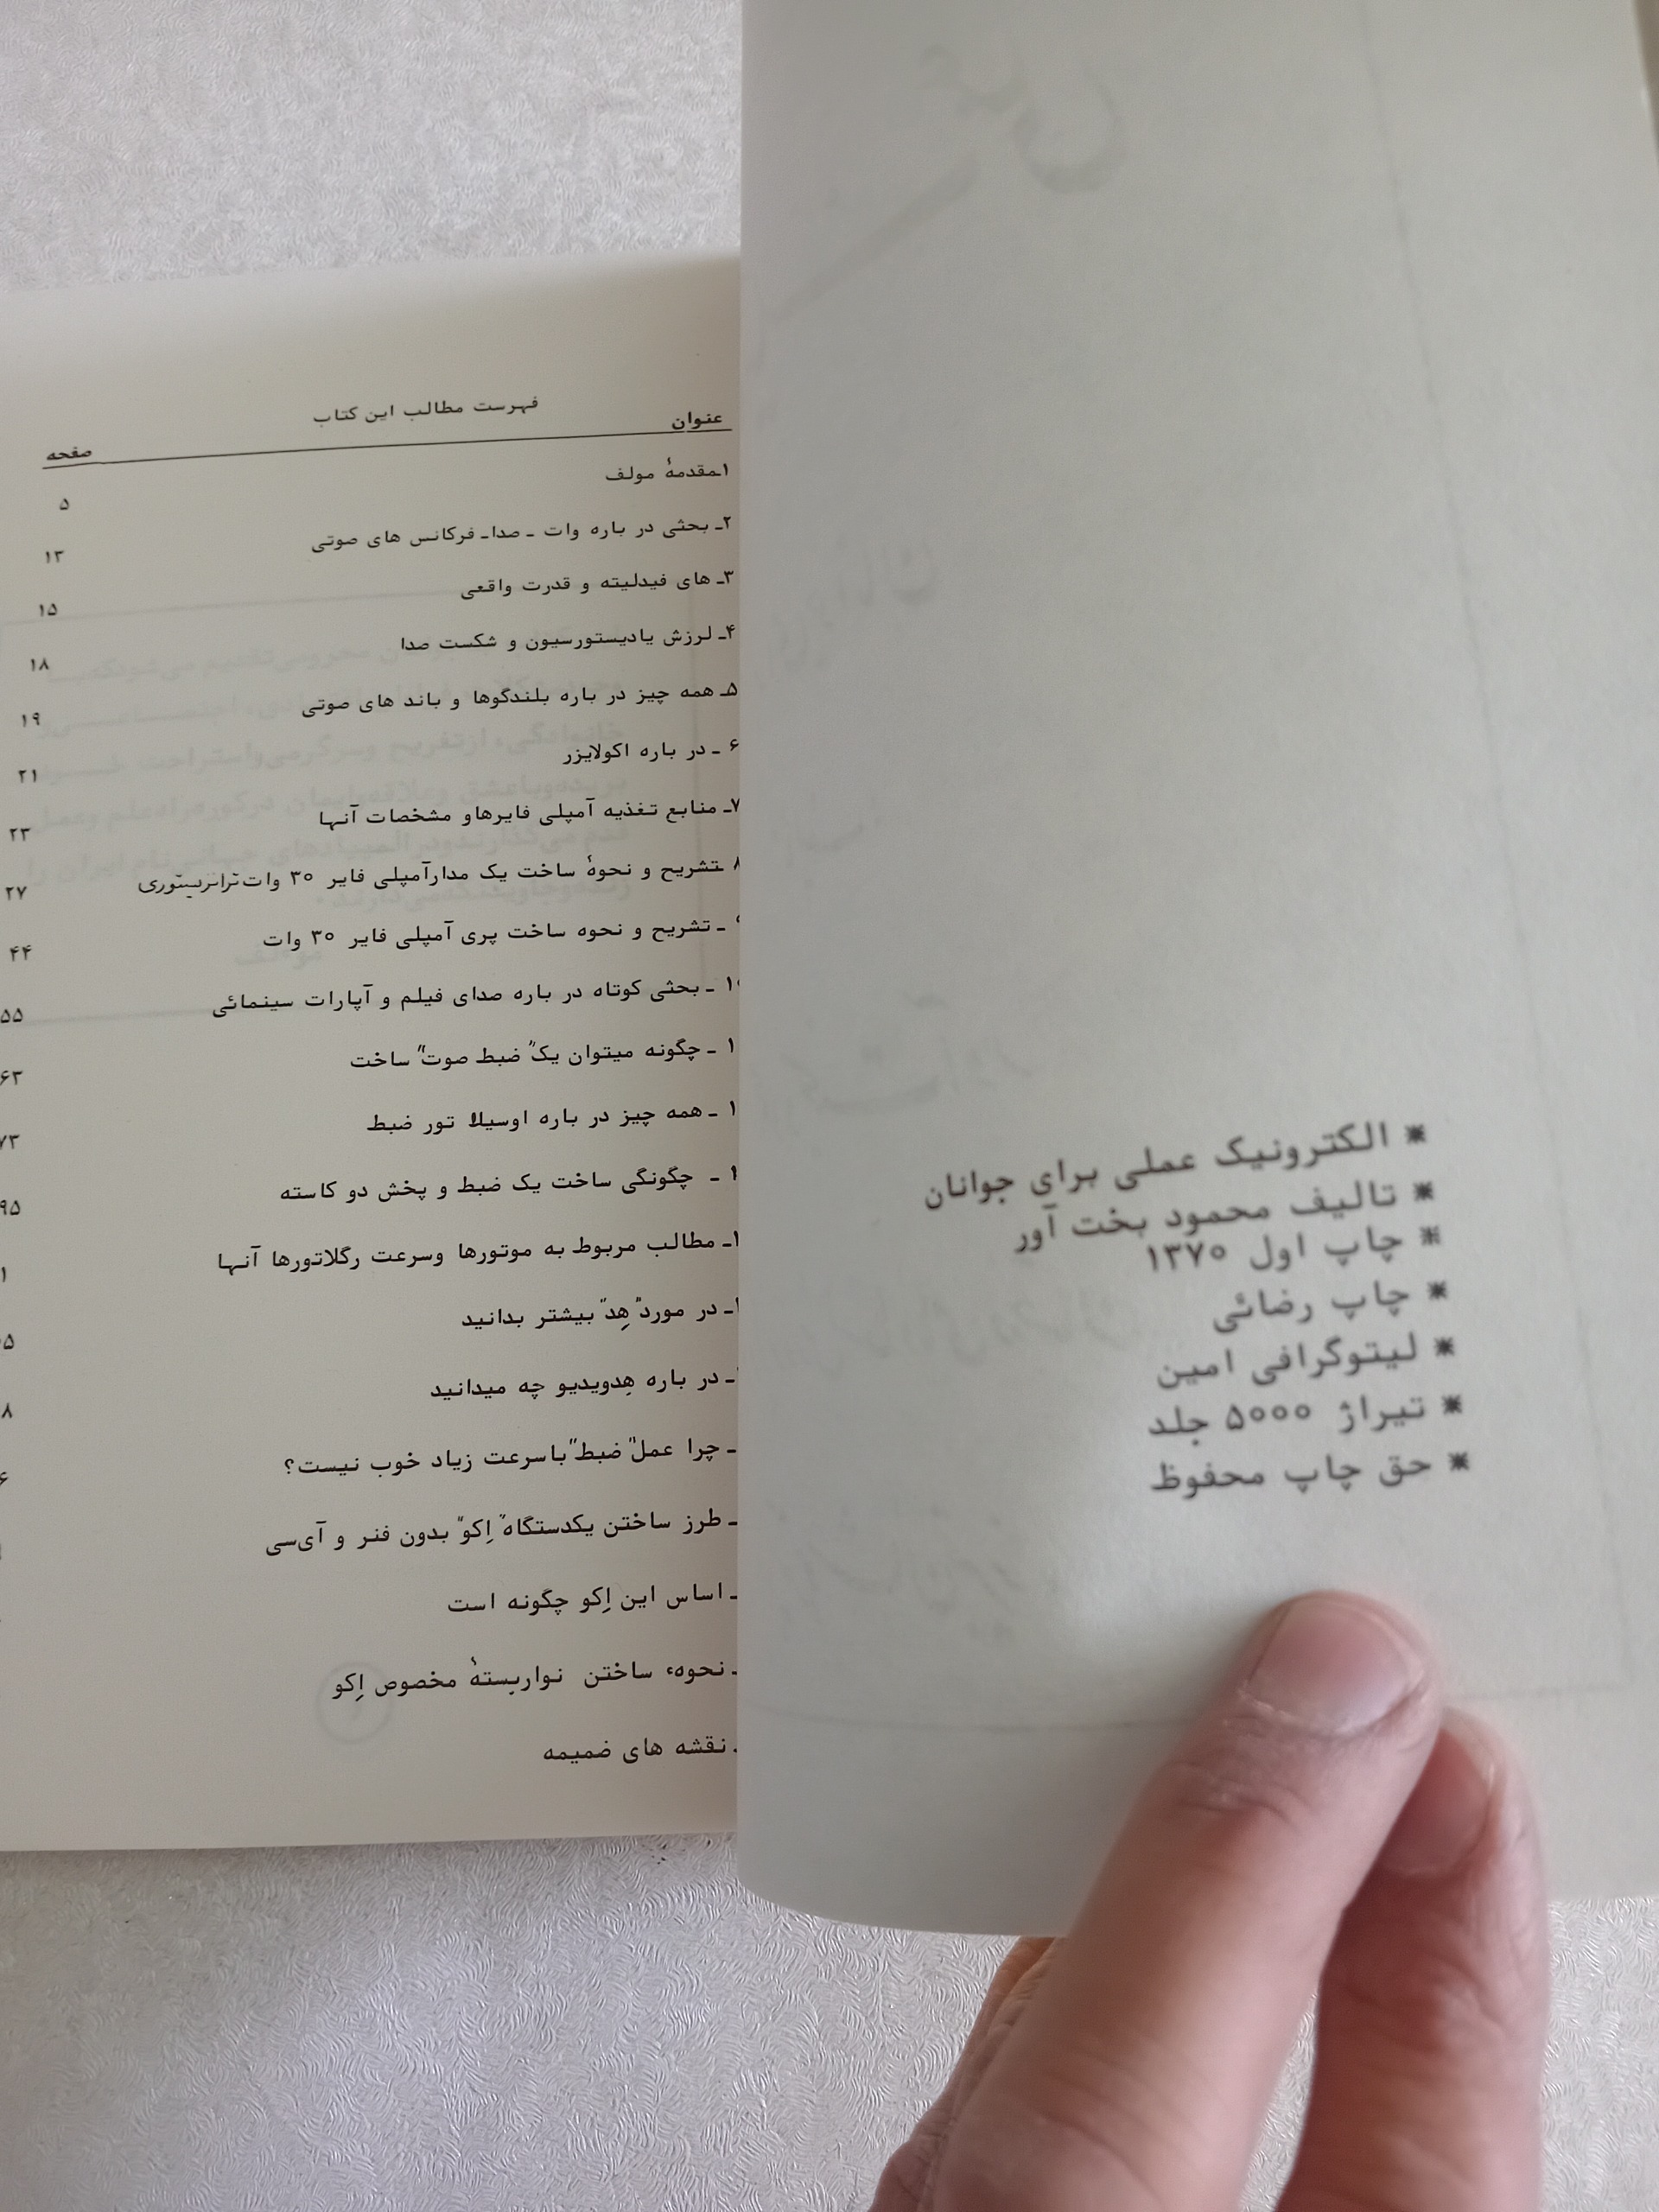 ※ الکترونیک عملی برای جوانان
※ تالیف محمود بخت آور
※ چاپ اول ۱۳۷۰
※ چاپ رضائی
※ لیتوگرافی امین
※ تیراژ ۵۰۰۰ جلد
※ حق چاپ محفوظ
فهرست مطالب این کتاب
عنوان صفحه
۱ـمقدمهٔ مولف ۵
۲ـ بحثی در باره وات ـ صداـ فرکانس های صوتی ۱۳
۳ـ های فیدلیته و قدرت واقعی ۱۵
۴ـ لرزش یادیستورسیون و شکست صدا ۱۸
۵ـ همه چیز در باره بلندگوها و باند های صوتی ۱۹
۶ ـ در باره اکولایزر ۲۱
۷ـ منابع تغذیه آمپلی فایرهاو مشخصات آنها ۲۳
۸ ـتشریح و نحوهٔ ساخت یک مدارآمپلی فایر ۳۰ وات ترانزیستوری ۲۷
ـ تشریح و نحوه ساخت پری آمپلی فایر ۳۰ وات ۴۴
۱۰ ـ بحثی کوتاه در باره صدای فیلم و آپارات سینمائی ۵۵
۱ ـ چگونه میتوان یک "ضبط صوت" ساخت ۶۳
۱ ـ همه چیز در باره اوسیلا تور ضبط ۷۳
۱ ـ چگونگی ساخت یک ضبط و پخش دو کاسته ۹۵
۱ـ مطالب مربوط به موتورها وسرعت رگلاتورها آنها ۱
۱ـ در مورد "هِد" بیشتر بدانید ۵
ـ در باره هِدویدیو چه میدانید ۸
ـ چرا عمل "ضبط" باسرعت زیاد خوب نیست؟ ۶
ـ طرز ساختن یکدستگاه "اِکو" بدون فنر و آی‌سی
ـ اساس این اِکو چگونه است
ـ نحوهء ساختن نواربستهٔ مخصوص اِکو
ـ نقشه های ضمیمه